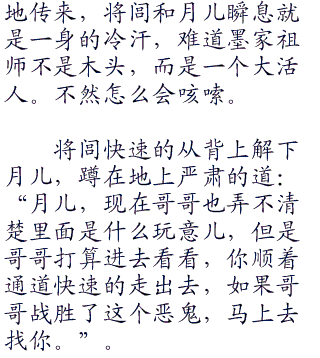 地传来，将闾和月儿瞬息就
是一身的冷汗，难道墨家祖
师不是木头，而是一个大活
人。不然怎么会咳嗦。
将闾快速的从背上解下
月儿，蹲在地上严肃的道：
“月儿，现在哥哥也弄不清
楚里面是什么玩意儿，但是
哥哥打算进去看看，你顺着
通道快速的走出去，如果哥
哥战胜了这个恶鬼，马上去
找你。”。